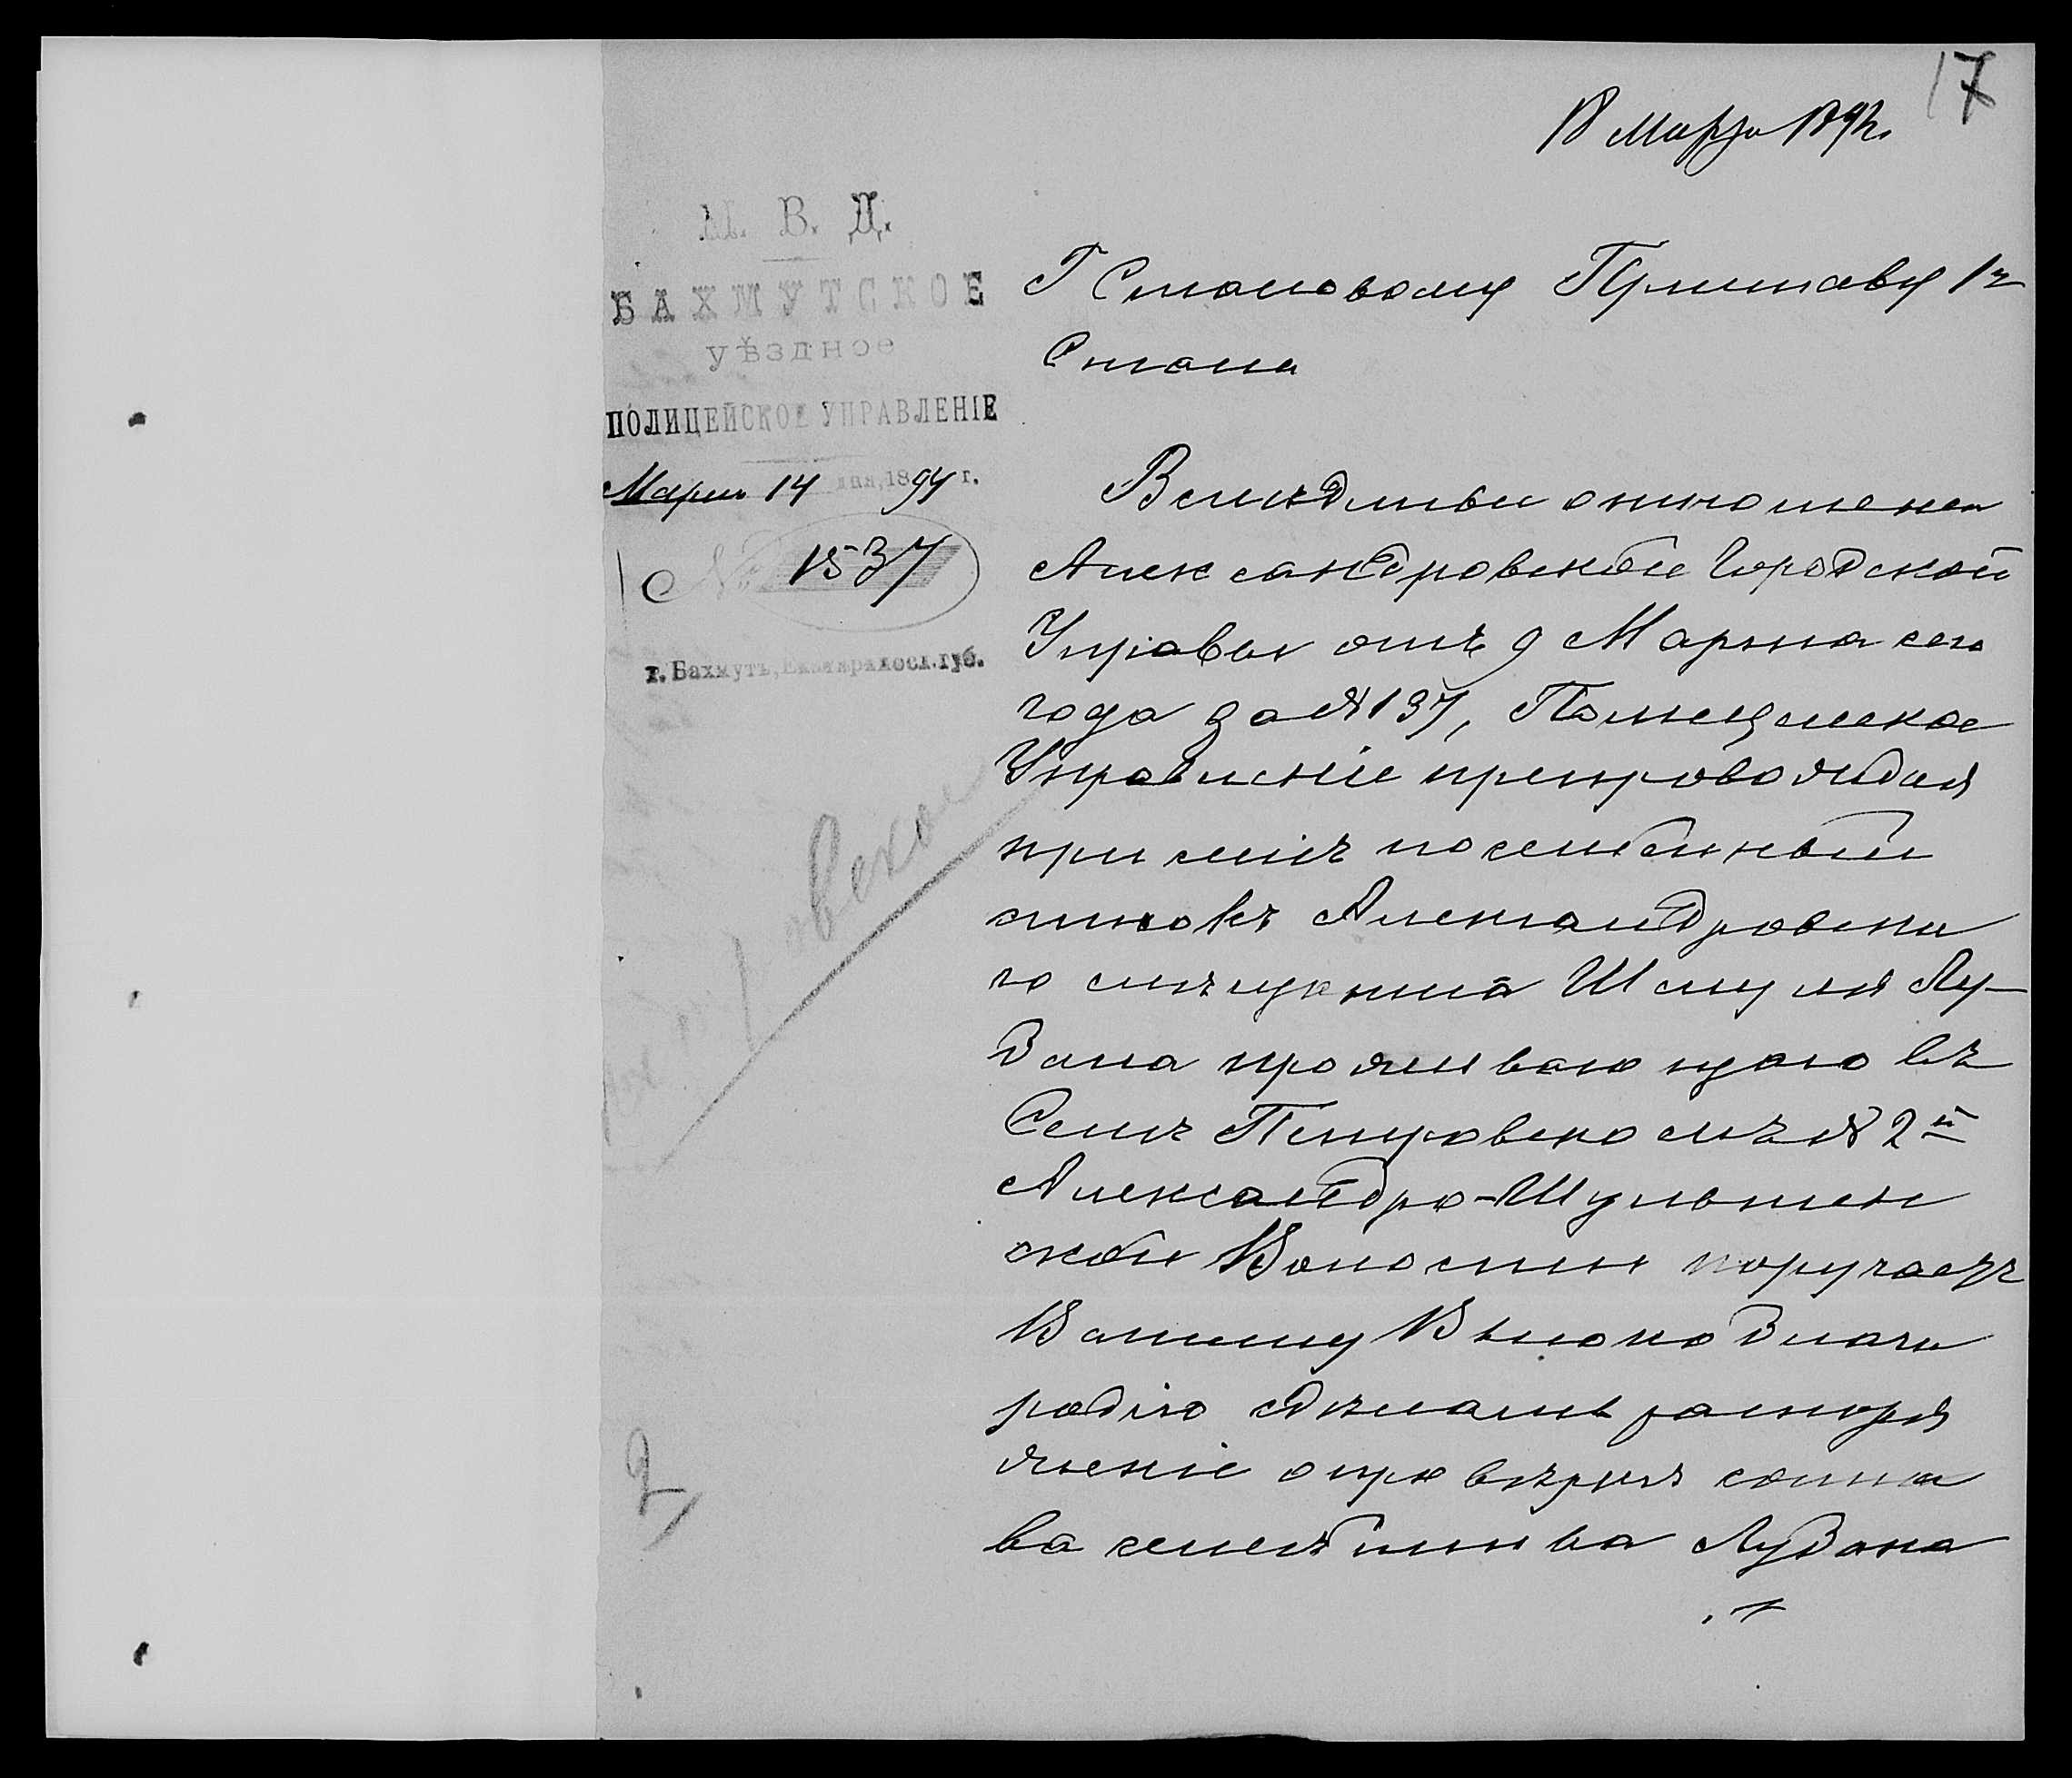 17
18 Марта 1894.
М. В. Д.
БАХМУТСКОЕ
уѣздное
ПОЛИЦЕЙСКОЕ УПРАВЛЕНІЕ
Марта 14 дня, 1894 г.
№ 1537
г. Бахмутъ, Екатериносл. губ.
Г Становому Приставу 1го
Стана
Вслѣдствіи отношенія
Александровской Городской
Управы отъ 9 Марта сего
года за № 137, Полицейское
Управленіе препровождая
при семъ посемейный
списокъ Александровска
го мѣщанина Шмуля Лу-
дана проживающаго въ
Селѣ Петровскомъ № 2й
Александро-Шультен
ской Волости поручаетъ
Вашему Высокоблаго
родію сдѣлать распоря
женіе о провѣркѣ соста
ва семейства Лудана
2